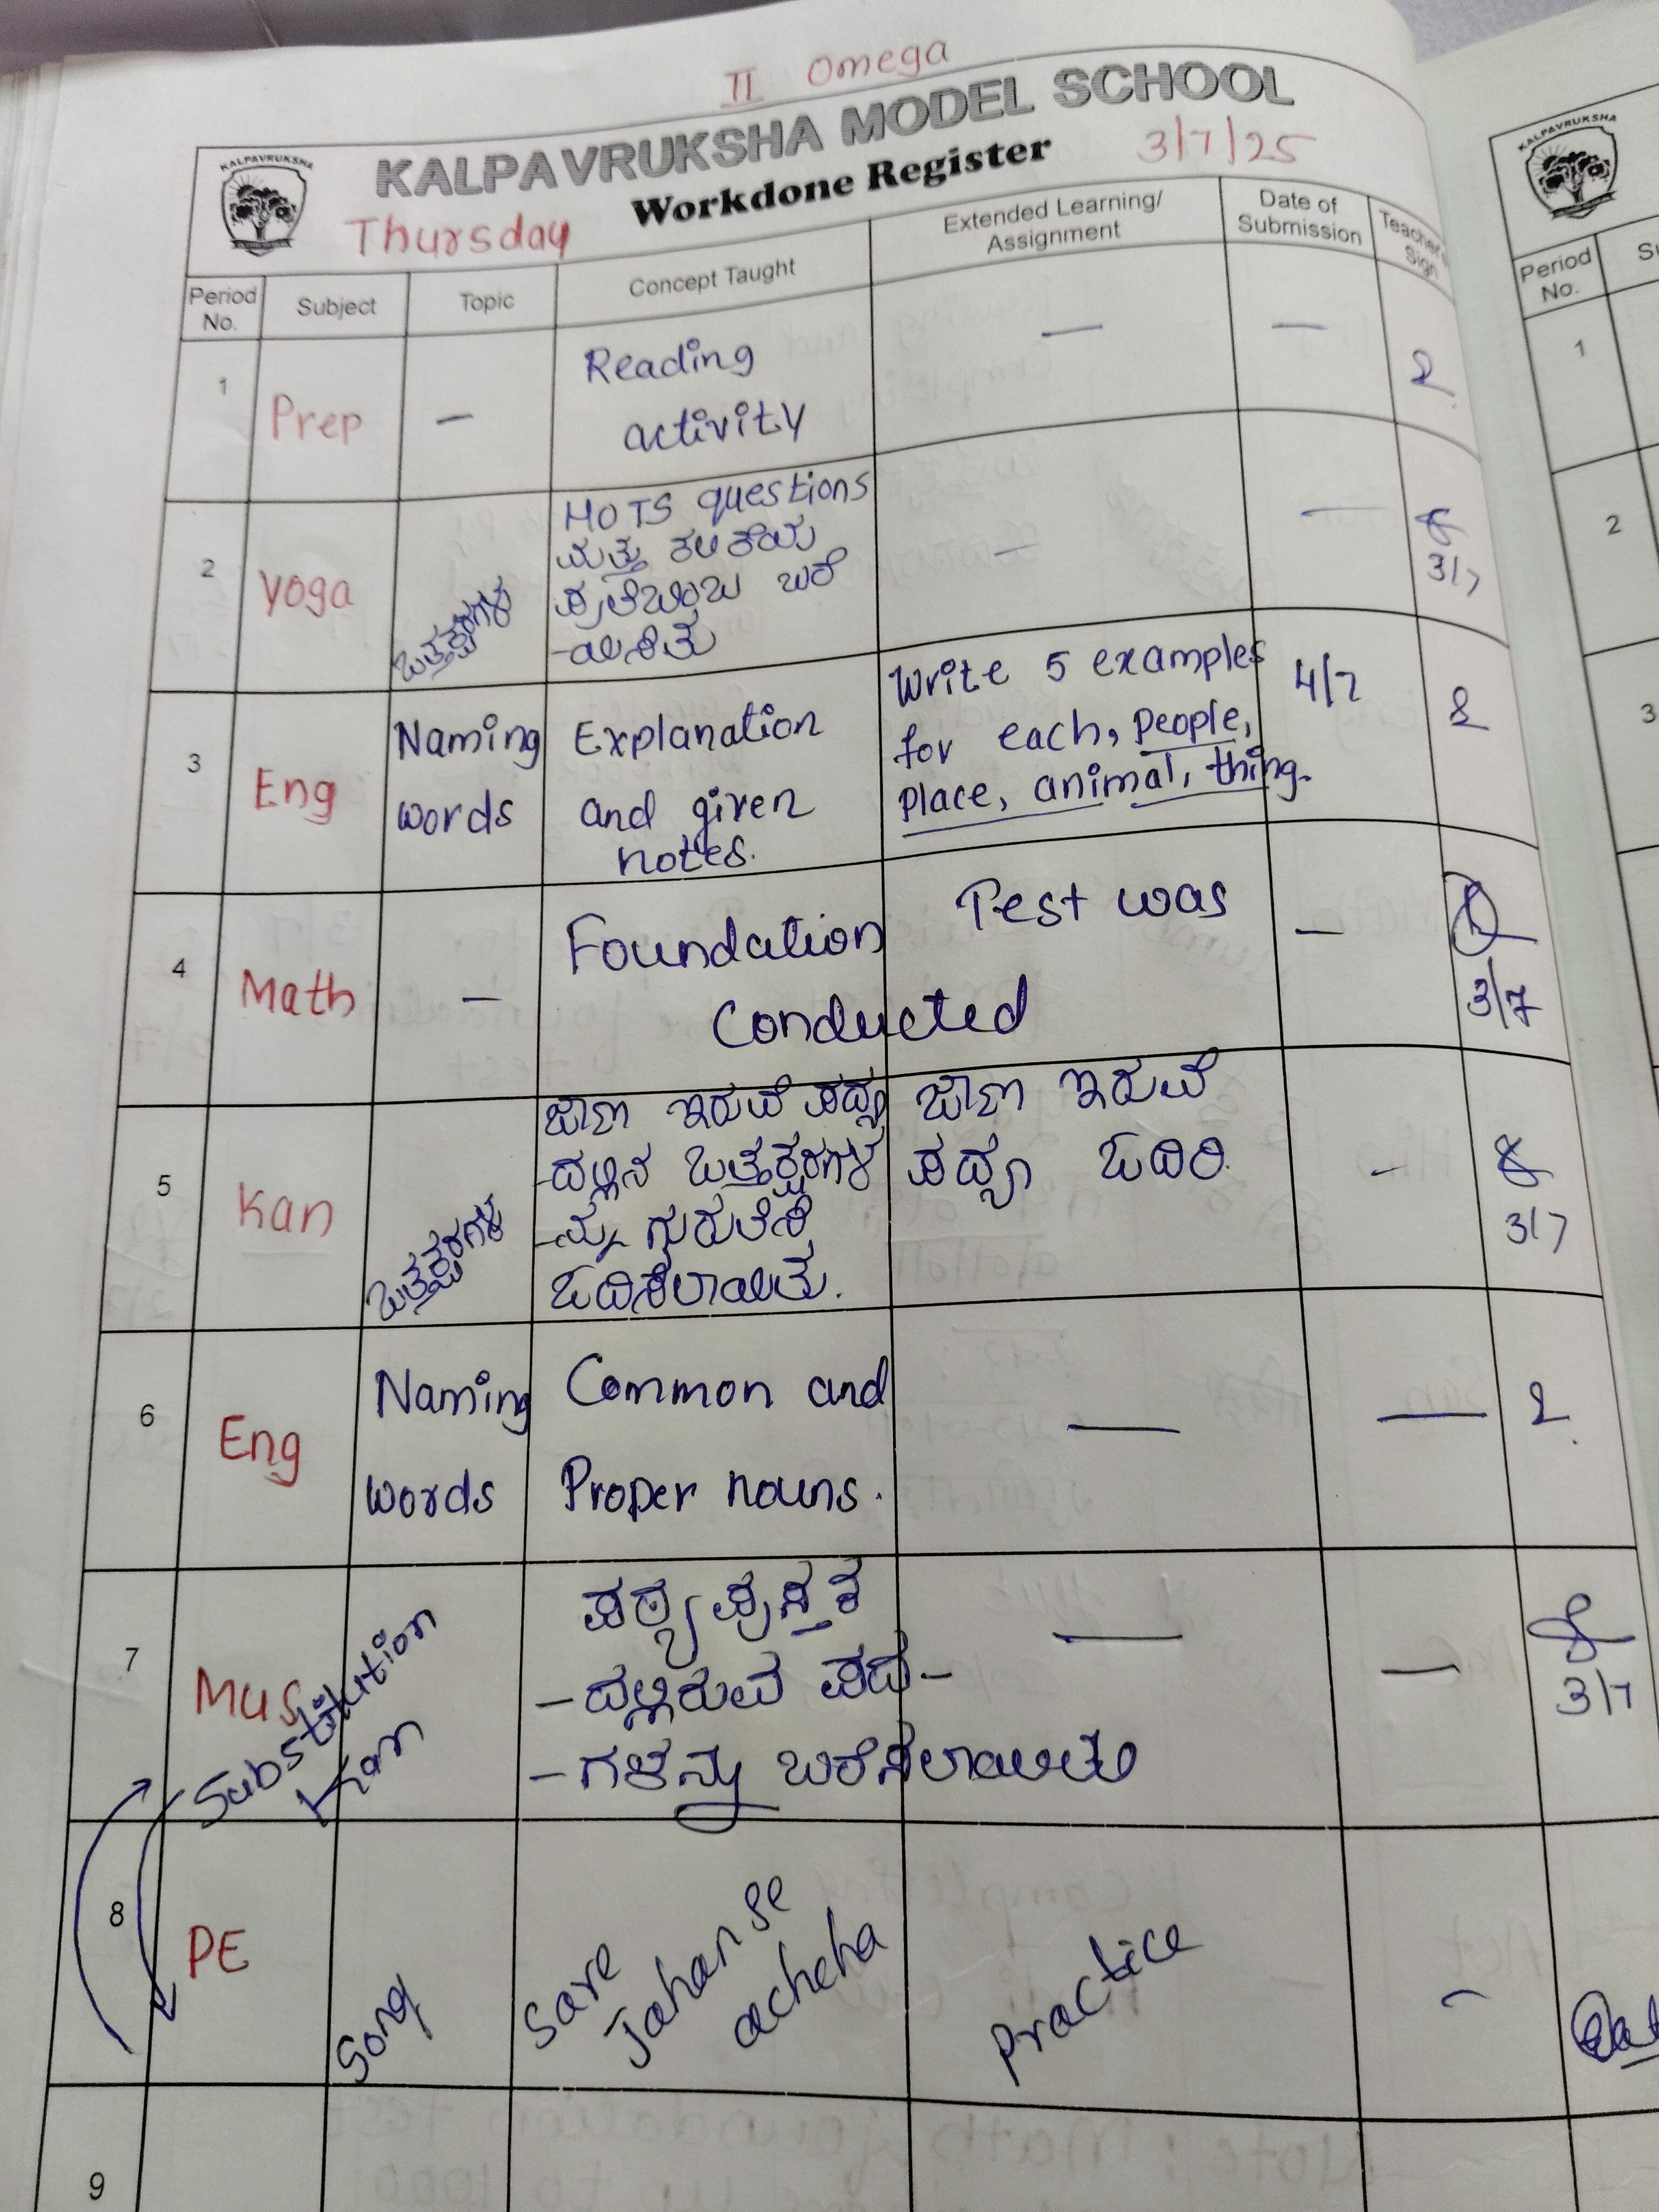 II Omega
KALPAVRUKSHA MODEL SCHOOL
KALPAVRUKSHA
Workdone Register
3/7/25
Thursday
Period No.
Subject
Topic
Concept Taught
Extended Learning/
Assignment
Date of
Submission
Teacher's
Sign
1
Prep
—
Reading
activity
—
—
2
Yoga
ಒತ್ತಕ್ಷರಗಳು
HOTS questions
ಮತ್ತು ಕಲಿಕೆಯ
ಪ್ರತಿಬಿಂಬ ಬರೆ
-ಯಿಸಿತು
—
—
3/7
3
Eng
Naming
words
Explanation
and given
notes.
Write 5 examples
for each, people,
place, animal, thing.
4/7
4
Math
—
Foundation Test was
Conducted
—
3/7
5
Kan
ಒತ್ತಕ್ಷರಗಳು
ಜಾಣ ಇರುವೆ ಪದ್ಯ
-ದಲ್ಲಿನ ಒತ್ತಕ್ಷರಗಳ
-ನ್ನು ಗುರುತಿಸಿ
ಓದಿಸಲಾಯಿತು.
ಜಾಣ ಇರುವೆ
ಪದ್ಯ ಓದಿರಿ.
-
3/7
6
Eng
Naming
words
Common and
Proper nouns.
—
—
7
Mus
Substitution
Kan
ಪಠ್ಯ ಪುಸ್ತಕ
-ದಲ್ಲಿರುವ ಪದ-
-ಗಳನ್ನು ಬರೆಸಲಾಯಿತು
—
—
3/7
8
PE
Song
Sare
Jahan se
acheha
Practice
-
9
KALPAVRUKSHA
Period
No.
1
2
3